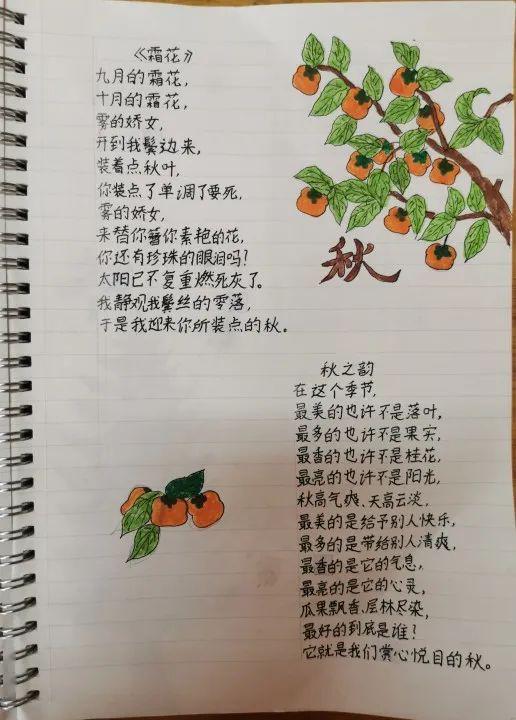 《霜花》
九月的霜花，
十月的霜花，
雾的娇女，
开到我鬓边来，
装着点秋叶，
你装点了单调了要死，
雾的娇女，
来替你簪你素艳的花，
你还有珍珠的眼泪吗？
太阳已不复重燃死灰了。
我静观我鬓丝的零落，
于是我迎来你所装点的秋。
秋
秋之韵
在这个季节，
最美的也许不是落叶，
最多的也许不是果实，
最香的也许不是桂花，
最亮的也许不是阳光，
秋高气爽、天高云淡，
最美的是给予别人快乐，
最多的是带给别人清爽，
最香的是它的气息，
最亮的是它的心灵，
瓜果飘香、层林尽染，
最好的到底是谁？
它就是我们赏心悦目的秋。